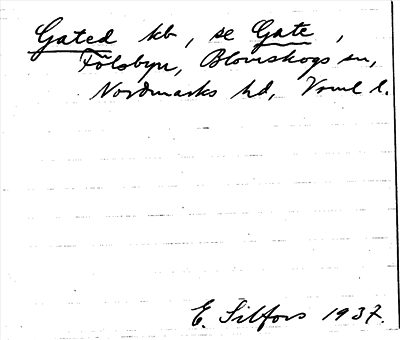 Gated kb, se Gate,
Fölsbyn, Blomskogs sn,
Nordmarks hd, Vrml l.
E. Silfors 1937.